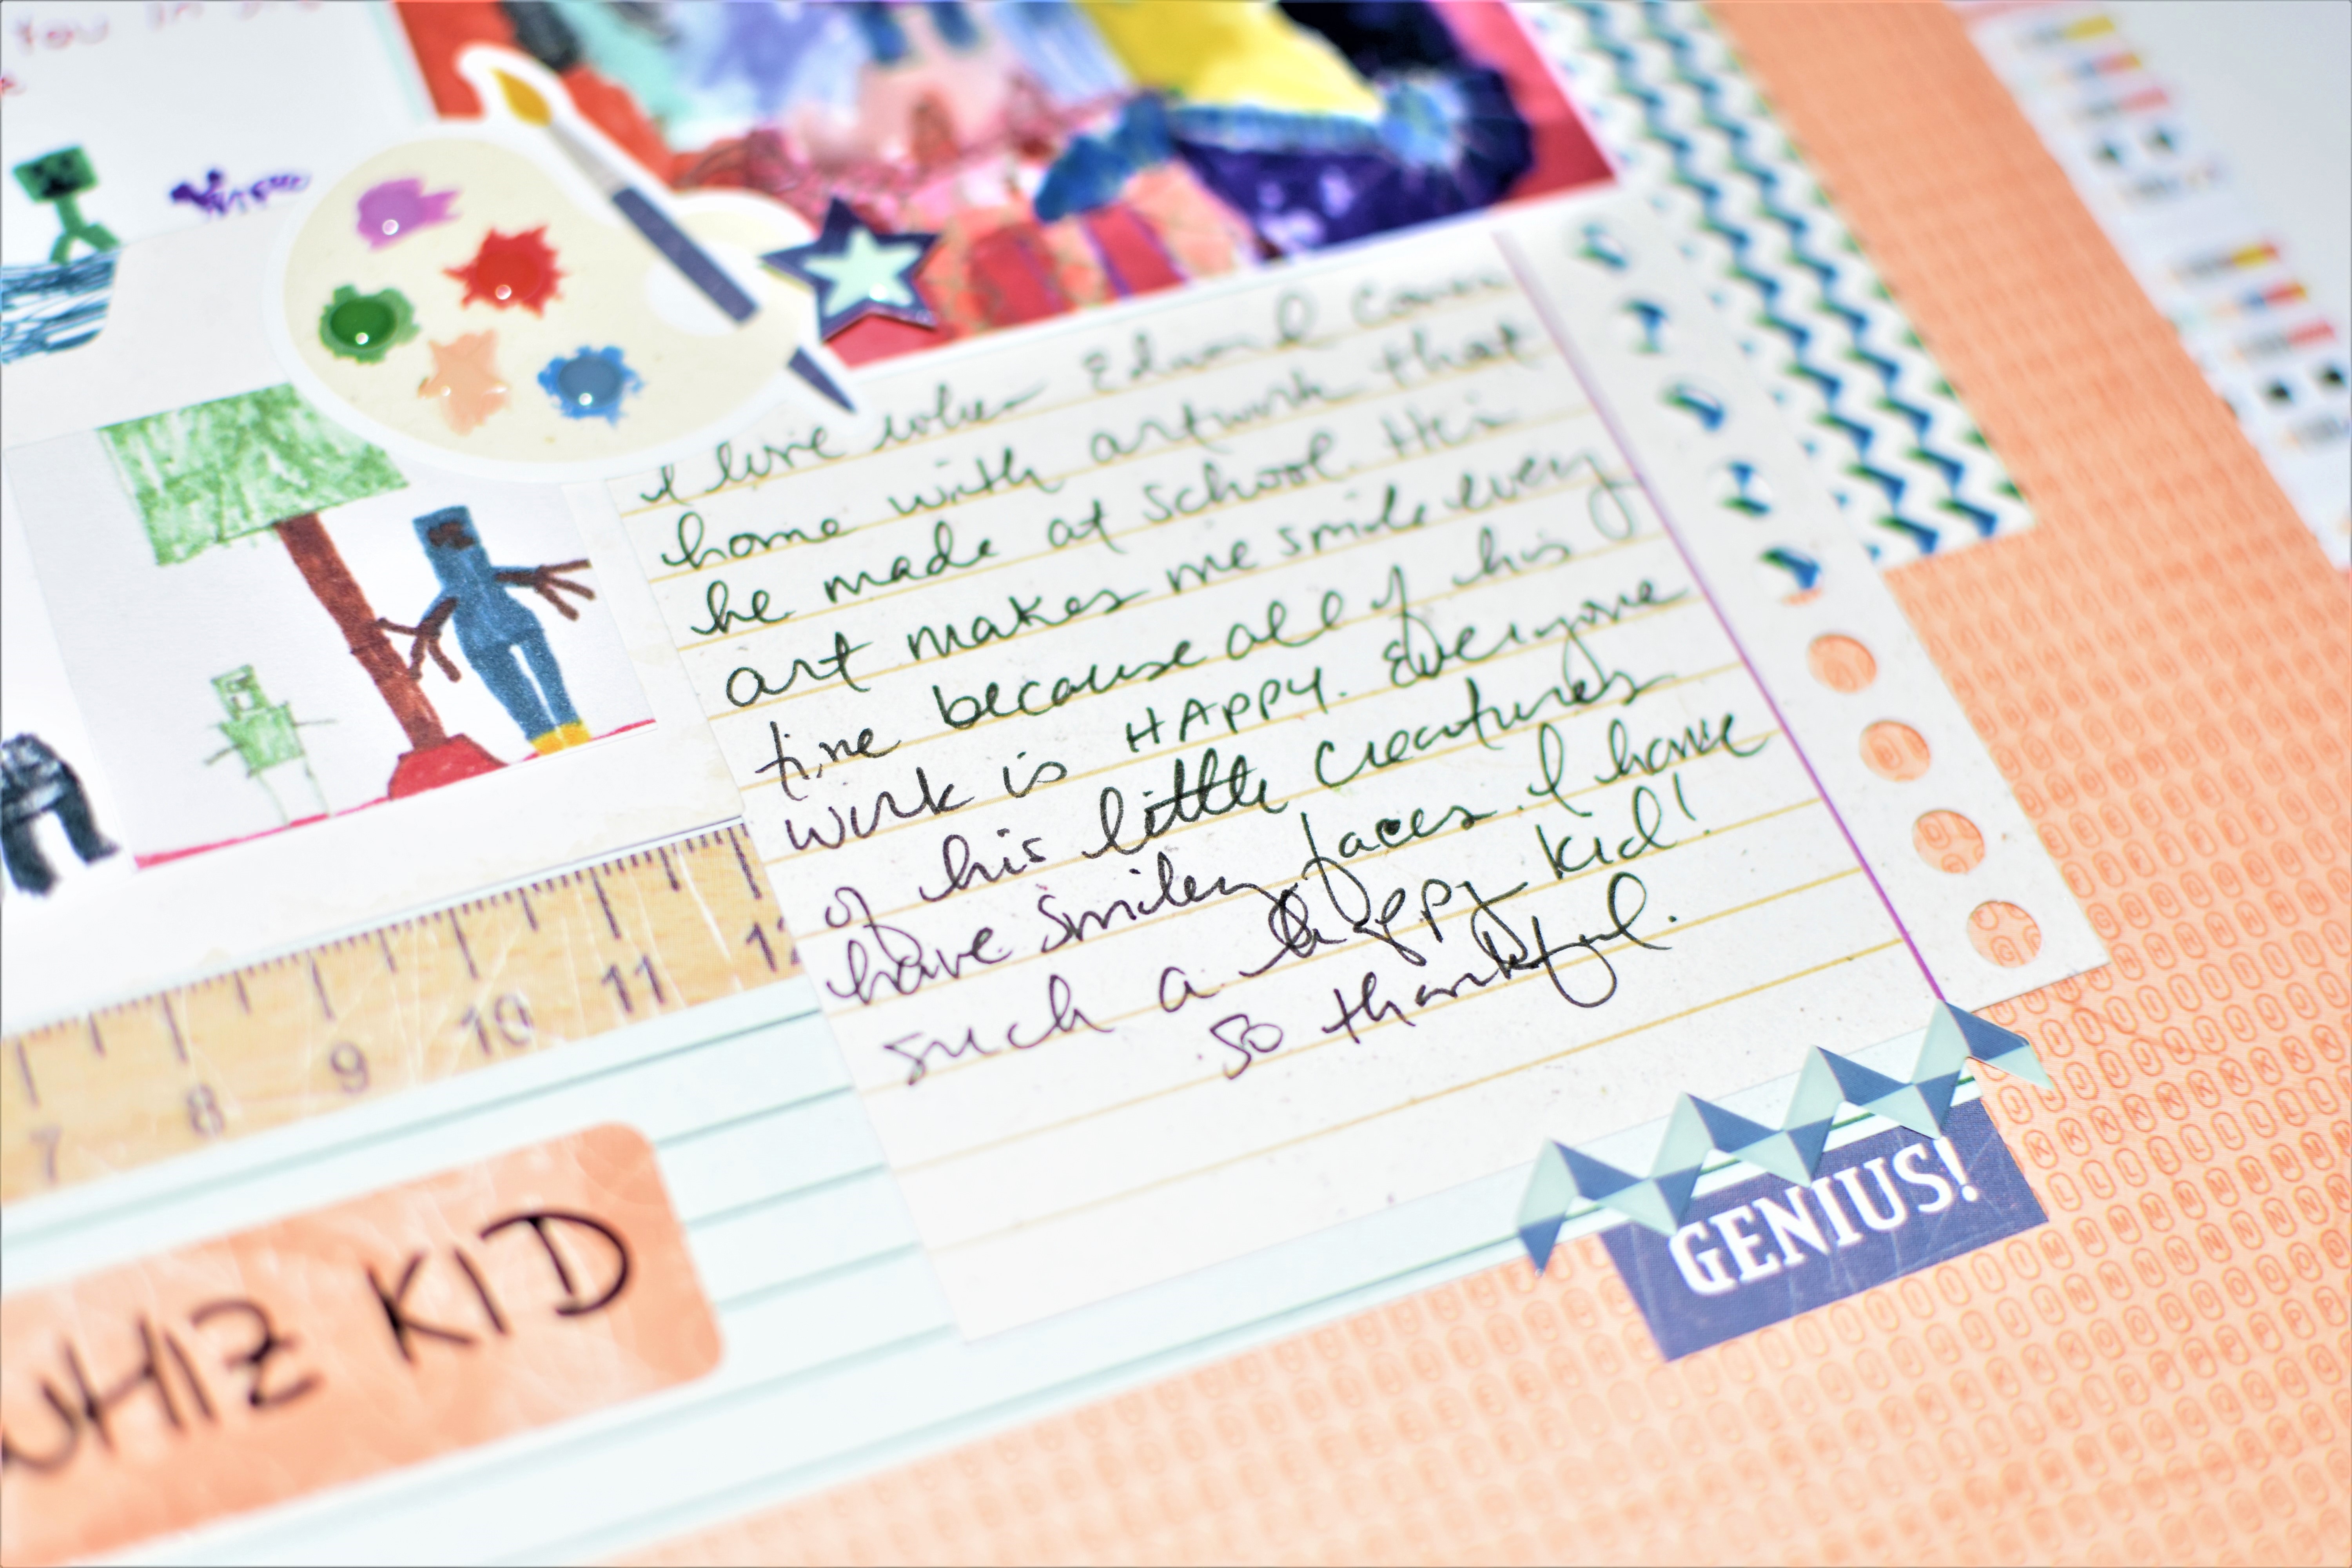 You in
I love when Edward comes
home with artwork that
he made at school. His
art makes me smile every
time because all of his
work is HAPPY. Everyone
of his little creatures
have smiley faces. I have
such a happy kid!
so thankful.
7 8 9 10 11 12
WHIZ KID
GENIUS!